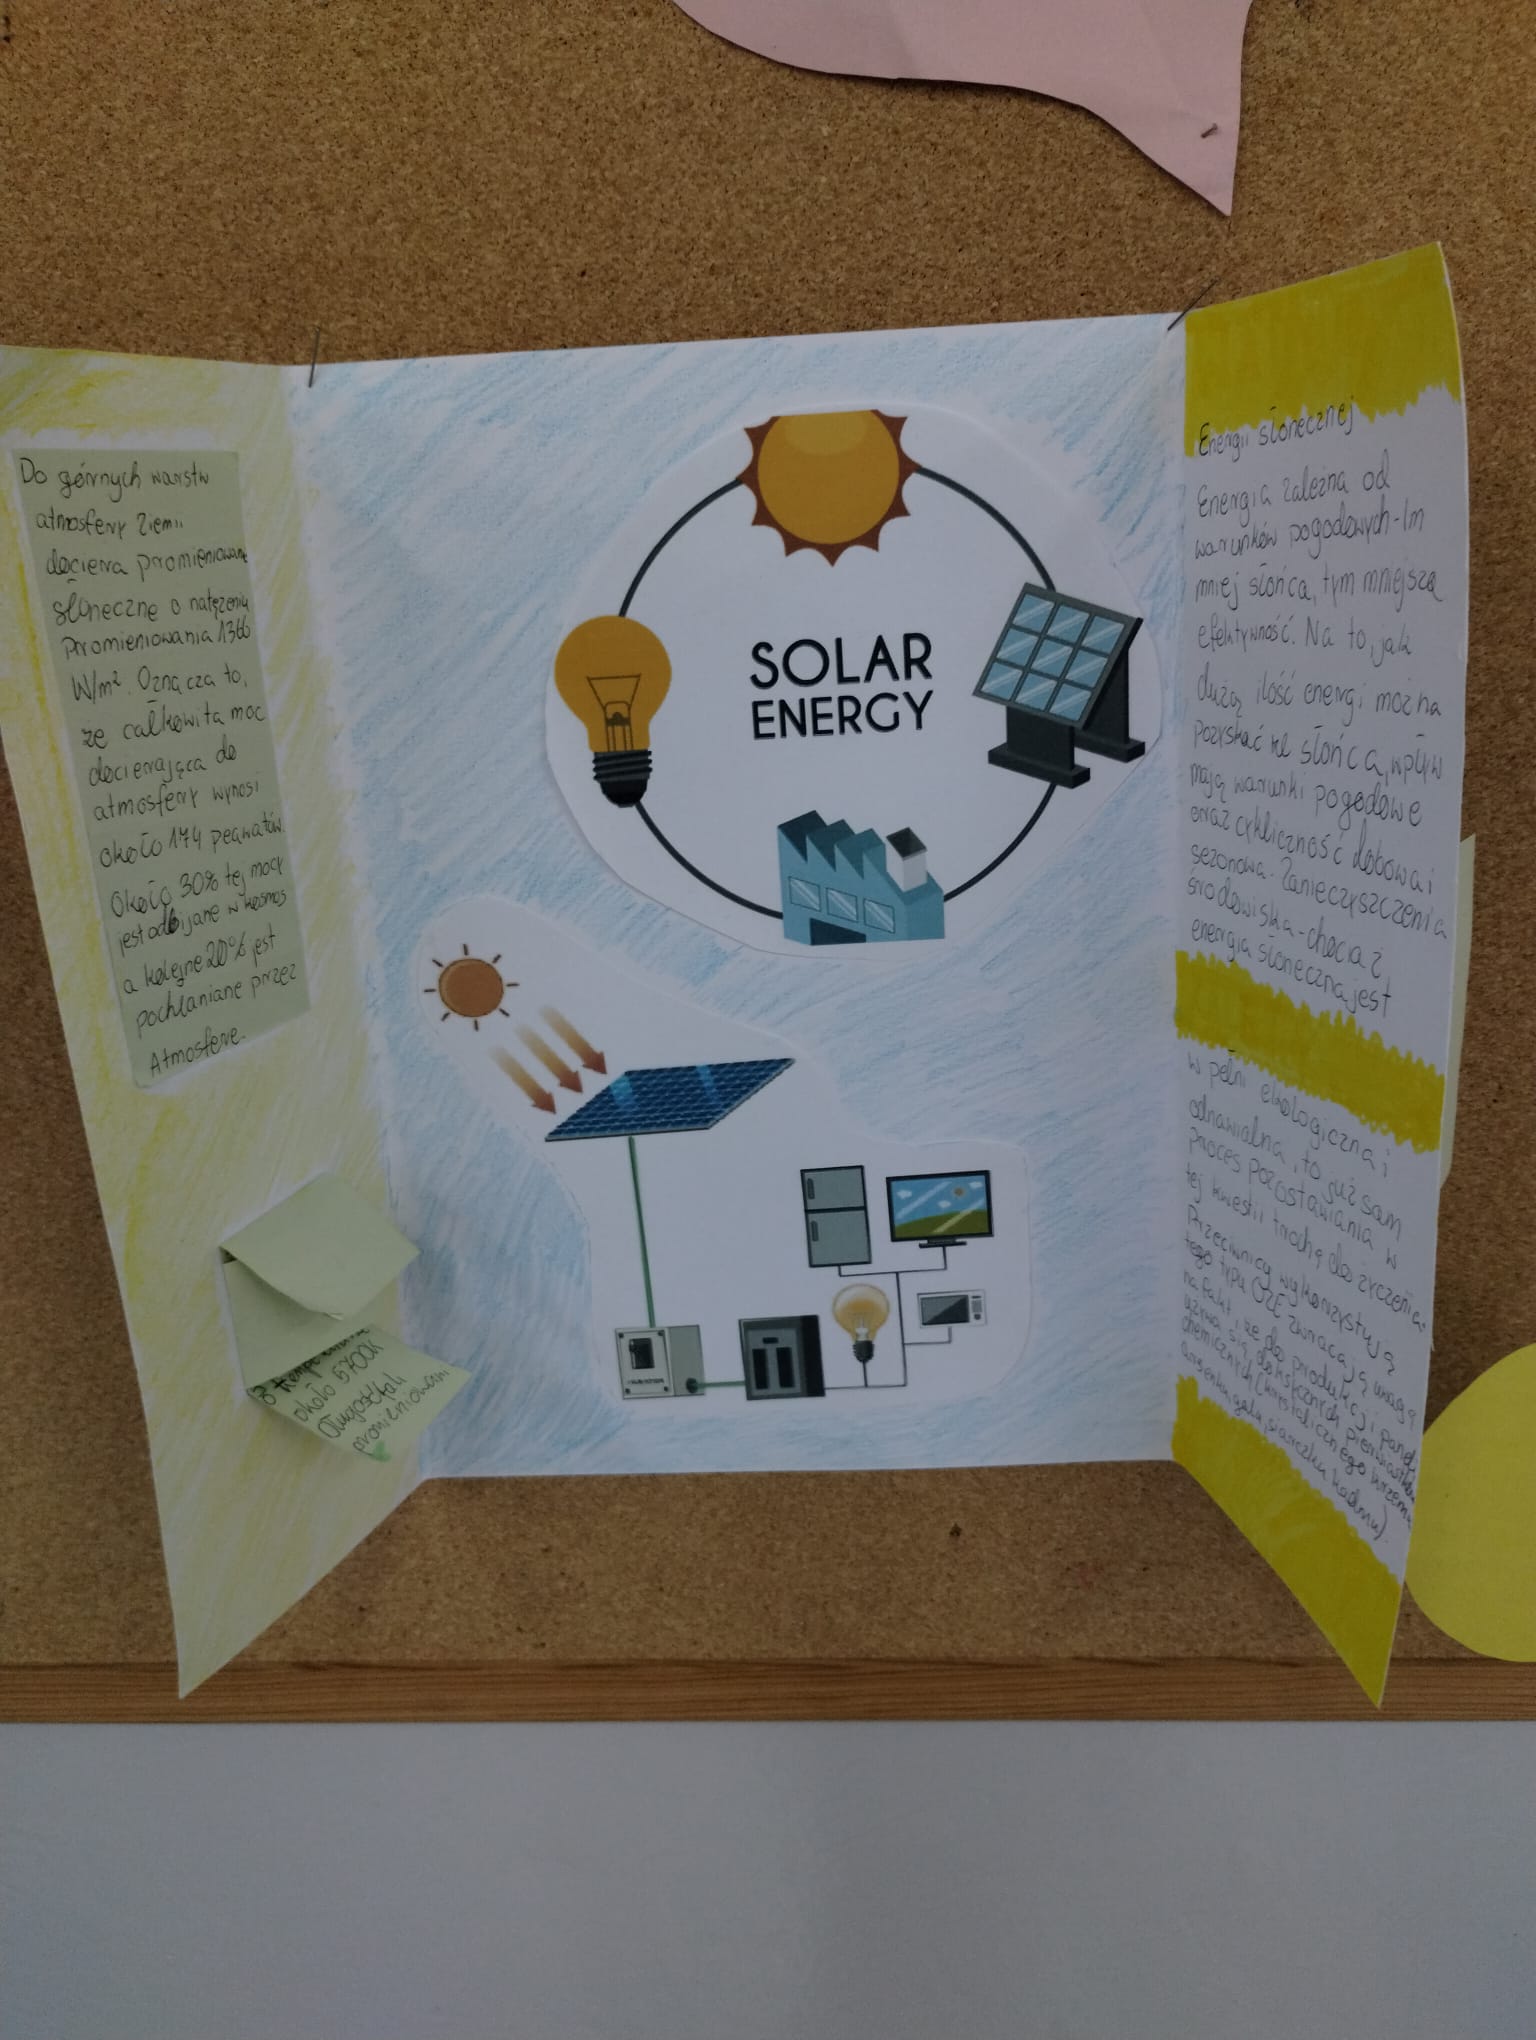 Do górnych warstw
atmosfery Ziemi
dociera promieniowanie
słoneczne o natężeniu
promieniowania 1366
W/m². Oznacza to,
że całkowita moc
docierająca do
atmosfery wynosi
około 174 petawatów.
Około 30% tej mocy
jest odbijane w kosmos
a kolejne 20% jest
pochłaniane przez
Atmosferę.
z temperaturze
około 5700K
Długość fali
promieniowani
SOLAR
ENERGY
Energii słonecznej
Energia zależna od
warunków pogodowych-Im
mniej słońca, tym mniejsza
efektywność. Na to, jak
dużą ilość energi można
pozyskać ze słońca, wpływ
mają warunki pogodowe
oraz cykliczność dobowa i
sezonowa. Zanieczyszczenia
środowiska-chociaż
energia słoneczna jest
w pełni ekologiczna i
odnawialna, to już sam
proces pozostawiania w
tej kwestii trochę do życzenia.
Przeciwnicy wykorzystują
tego typu OZE zwracają uwagę
na fakt, że do produkcji paneli
używa się toksycznych pierwiastków
chemicznych (krystalicznego krzemu,
arsenku, galu, siarczku kadmu).